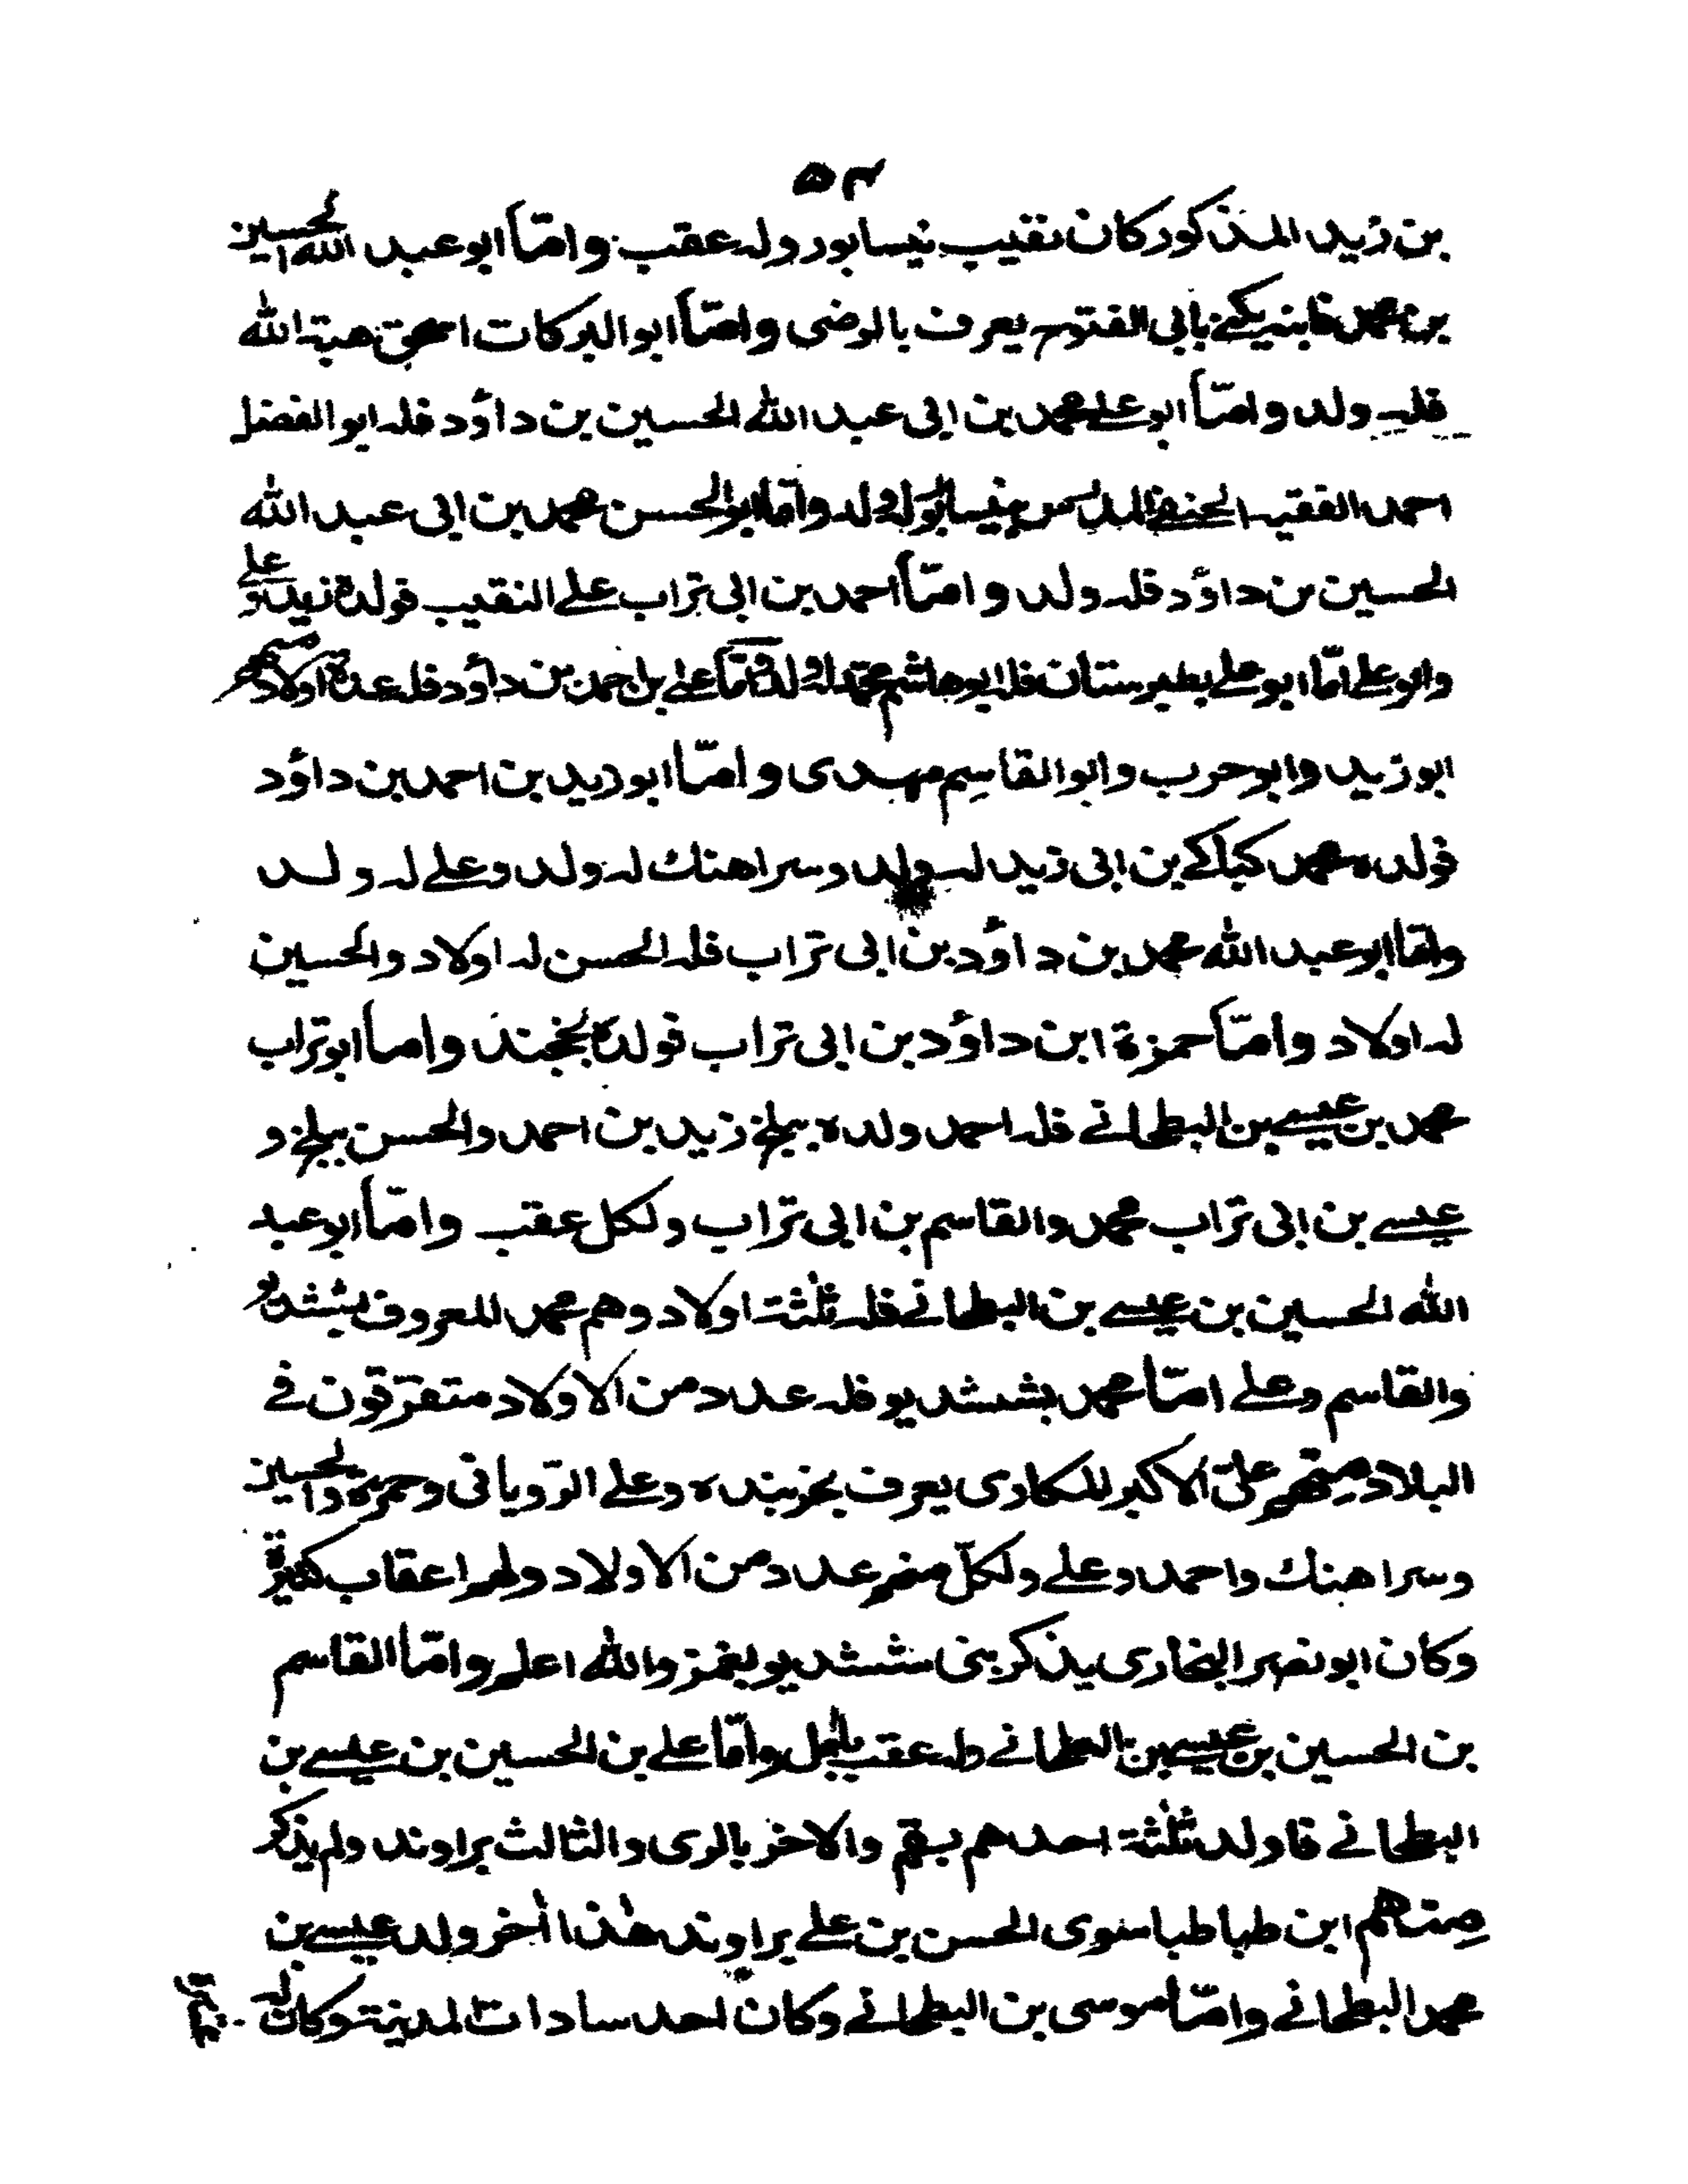 ٥٣
بن زيد المذكور كان نقيب نيسابور وله عقب وامّا ابو عبد الله الحسين
بن محمد فابنه يكنى بابى الفتوح يعرف بالرضى وامّا ابو البركات اسحق هبة الله
فله ولد وامّا ابو على محمد بن ابى عبد الله الحسين بن داؤد فله ابو الفضل
احمد الفقيه الحنفى المدرس بنيسابور له ولد وامّا ابو الحسن محمد بن ابى عبد الله
الحسين بن داؤد فله ولد وامّا احمد بن ابى تراب على النقيب فولده زيد وعلى
وابو على امّا ابو على بطبرستان فله ابو هاشم محمد له ولد وامّا على بن احمد بن داؤد فله عدة اولاد منهم
ابو زيد وابو حرب وابو القاسم مهدى وامّا ابو زيد بن احمد بن داؤد
فولده محمد كياكى بن ابى زيد له ولد وسراهنك له ولد وعلى له ولد
وامّا ابو عبد الله محمد بن داؤد بن ابى تراب فله الحسن له اولاد والحسين
له اولاد وامّا حمزة ابن داؤد بن ابى تراب فولده بخجند وامّا ابو تراب
محمد بن عيسے بن البطحانے فله احمد ولده ببلخ زيد بن احمد والحسن ببلخ و
عيسے بن ابى تراب محمد والقاسم بن ابى تراب ولكل عقب وامّا ابو عبد
الله الحسين بن عيسے بن البطحانے فله ثلٰثة اولاد وهم محمد المعروف بششديو
والقاسم وعلى امّا محمد بششديو فله عدد من الاولاد متفرّقون فے
البلاد منهم علىّ الاكبر المكارى يعرف بخربنده وعلى الرّويانى وحمزة والحسين
وسراهنك واحمد وعلى ولكلّ منهم عدد من الاولاد ولهم اعقاب كثيرة
وكان ابو نصر البخارى يذكر بنى ششديو بغمز والله اعلم وامّا القاسم
بن الحسين بن عيسے بن البطحانے وله عقب بآمل وامّا على بن الحسين بن عيسے بن
البطحانے فاولد ثلٰثة احدهم بقم والاخر بالرى والثالث براوند ولم يذكر
منهم ابن طباطبا سوى الحسن بن على براوند هٰذا اٰخر ولد عيسے بن
محمد البطحانے وامّا موسى بن البطحانے وكان احد سادات المدينة وكان له